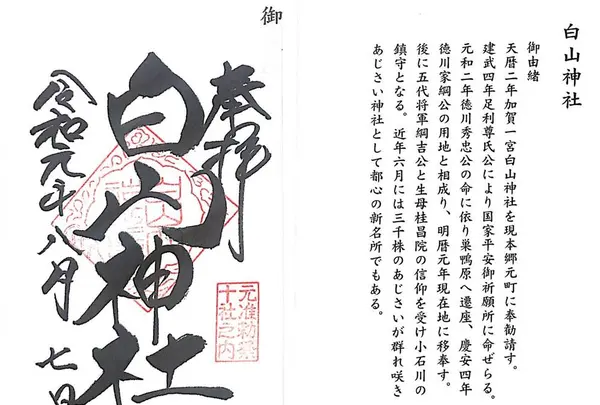 白山神社
御由緒
天暦二年加賀一宮白山神社を現本郷元町に奉勧請す。
建武四年足利尊氏公により国家平安御祈願所に命ぜらる。
元和二年徳川秀忠公の命に依り巣鴨原へ遷座、慶安四年
徳川家綱公の用地と相成り、明暦元年現在地に移奉す。
後に五代将軍綱吉公と生母桂昌院の信仰を受け小石川の
鎮守となる。近年六月には三千株のあじさいが群れ咲き
あじさい神社として都心の新名所でもある。
御
奉拝
元准勅祭
十社之内
白山神社
令和元年八月七日